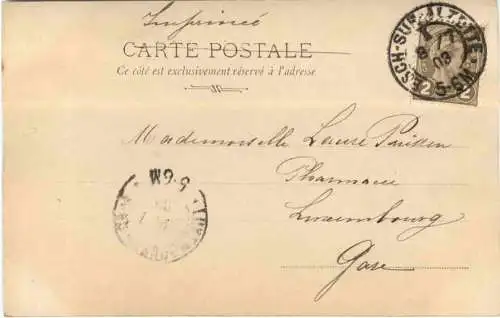 Imprimé
CARTE POSTALE
Ce côté est exclusivement réservé à l'adresse
ESCH-SUR-ALZETTE
03
5-6N
2 2
Mademoiselle Laure Parisen
Pharmacie
Luxembourg
Gare
6-9M